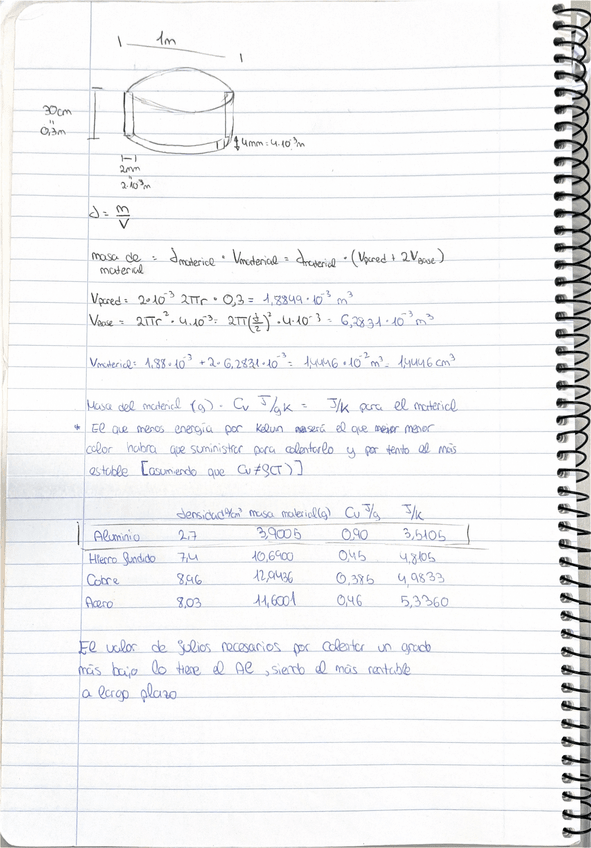 1m
30cm
"
0,3m
4mm = 4·10⁻³m
2mm
"
2·10⁻³m
d = m/V
masa de material = dmaterial · Vmaterial = dmaterial · (Vpared + 2Vbase)
Vpared = 2·10⁻³ 2πr · 0,3 = 1,8849·10⁻³ m³
VBase = 2πr² · 4·10⁻³ = 2π(d/2)² · 4·10⁻³ = 6,2831·10⁻³ m³
Vmaterial = 1,88·10⁻³ + 2·6,2831·10⁻³ = 1,4446·10⁻² m³ = 1,4446 cm³
Masa del material (g) · Cv J/gK = J/K para el material
* El que menos energía por Kelvin será el que menor
calor habra que suministrar para calentarlo y por tanto el más
estable [asumiendo que Cv≠f(T)]
densidad g/cm³ masa material(g) Cv J/g J/K
Aluminio 2.7 3,9005 0,90 3,5105
Hierro fundido 7,4 10,6900 0,45 4,8105
Cobre 8,96 12,9436 0,385 4,9833
Acero 8,03 11,6001 0,46 5,3360
El valor de julios necesarios por calentar un grado
más bajo lo tiene el Al, siendo el más rentable
a largo plazo